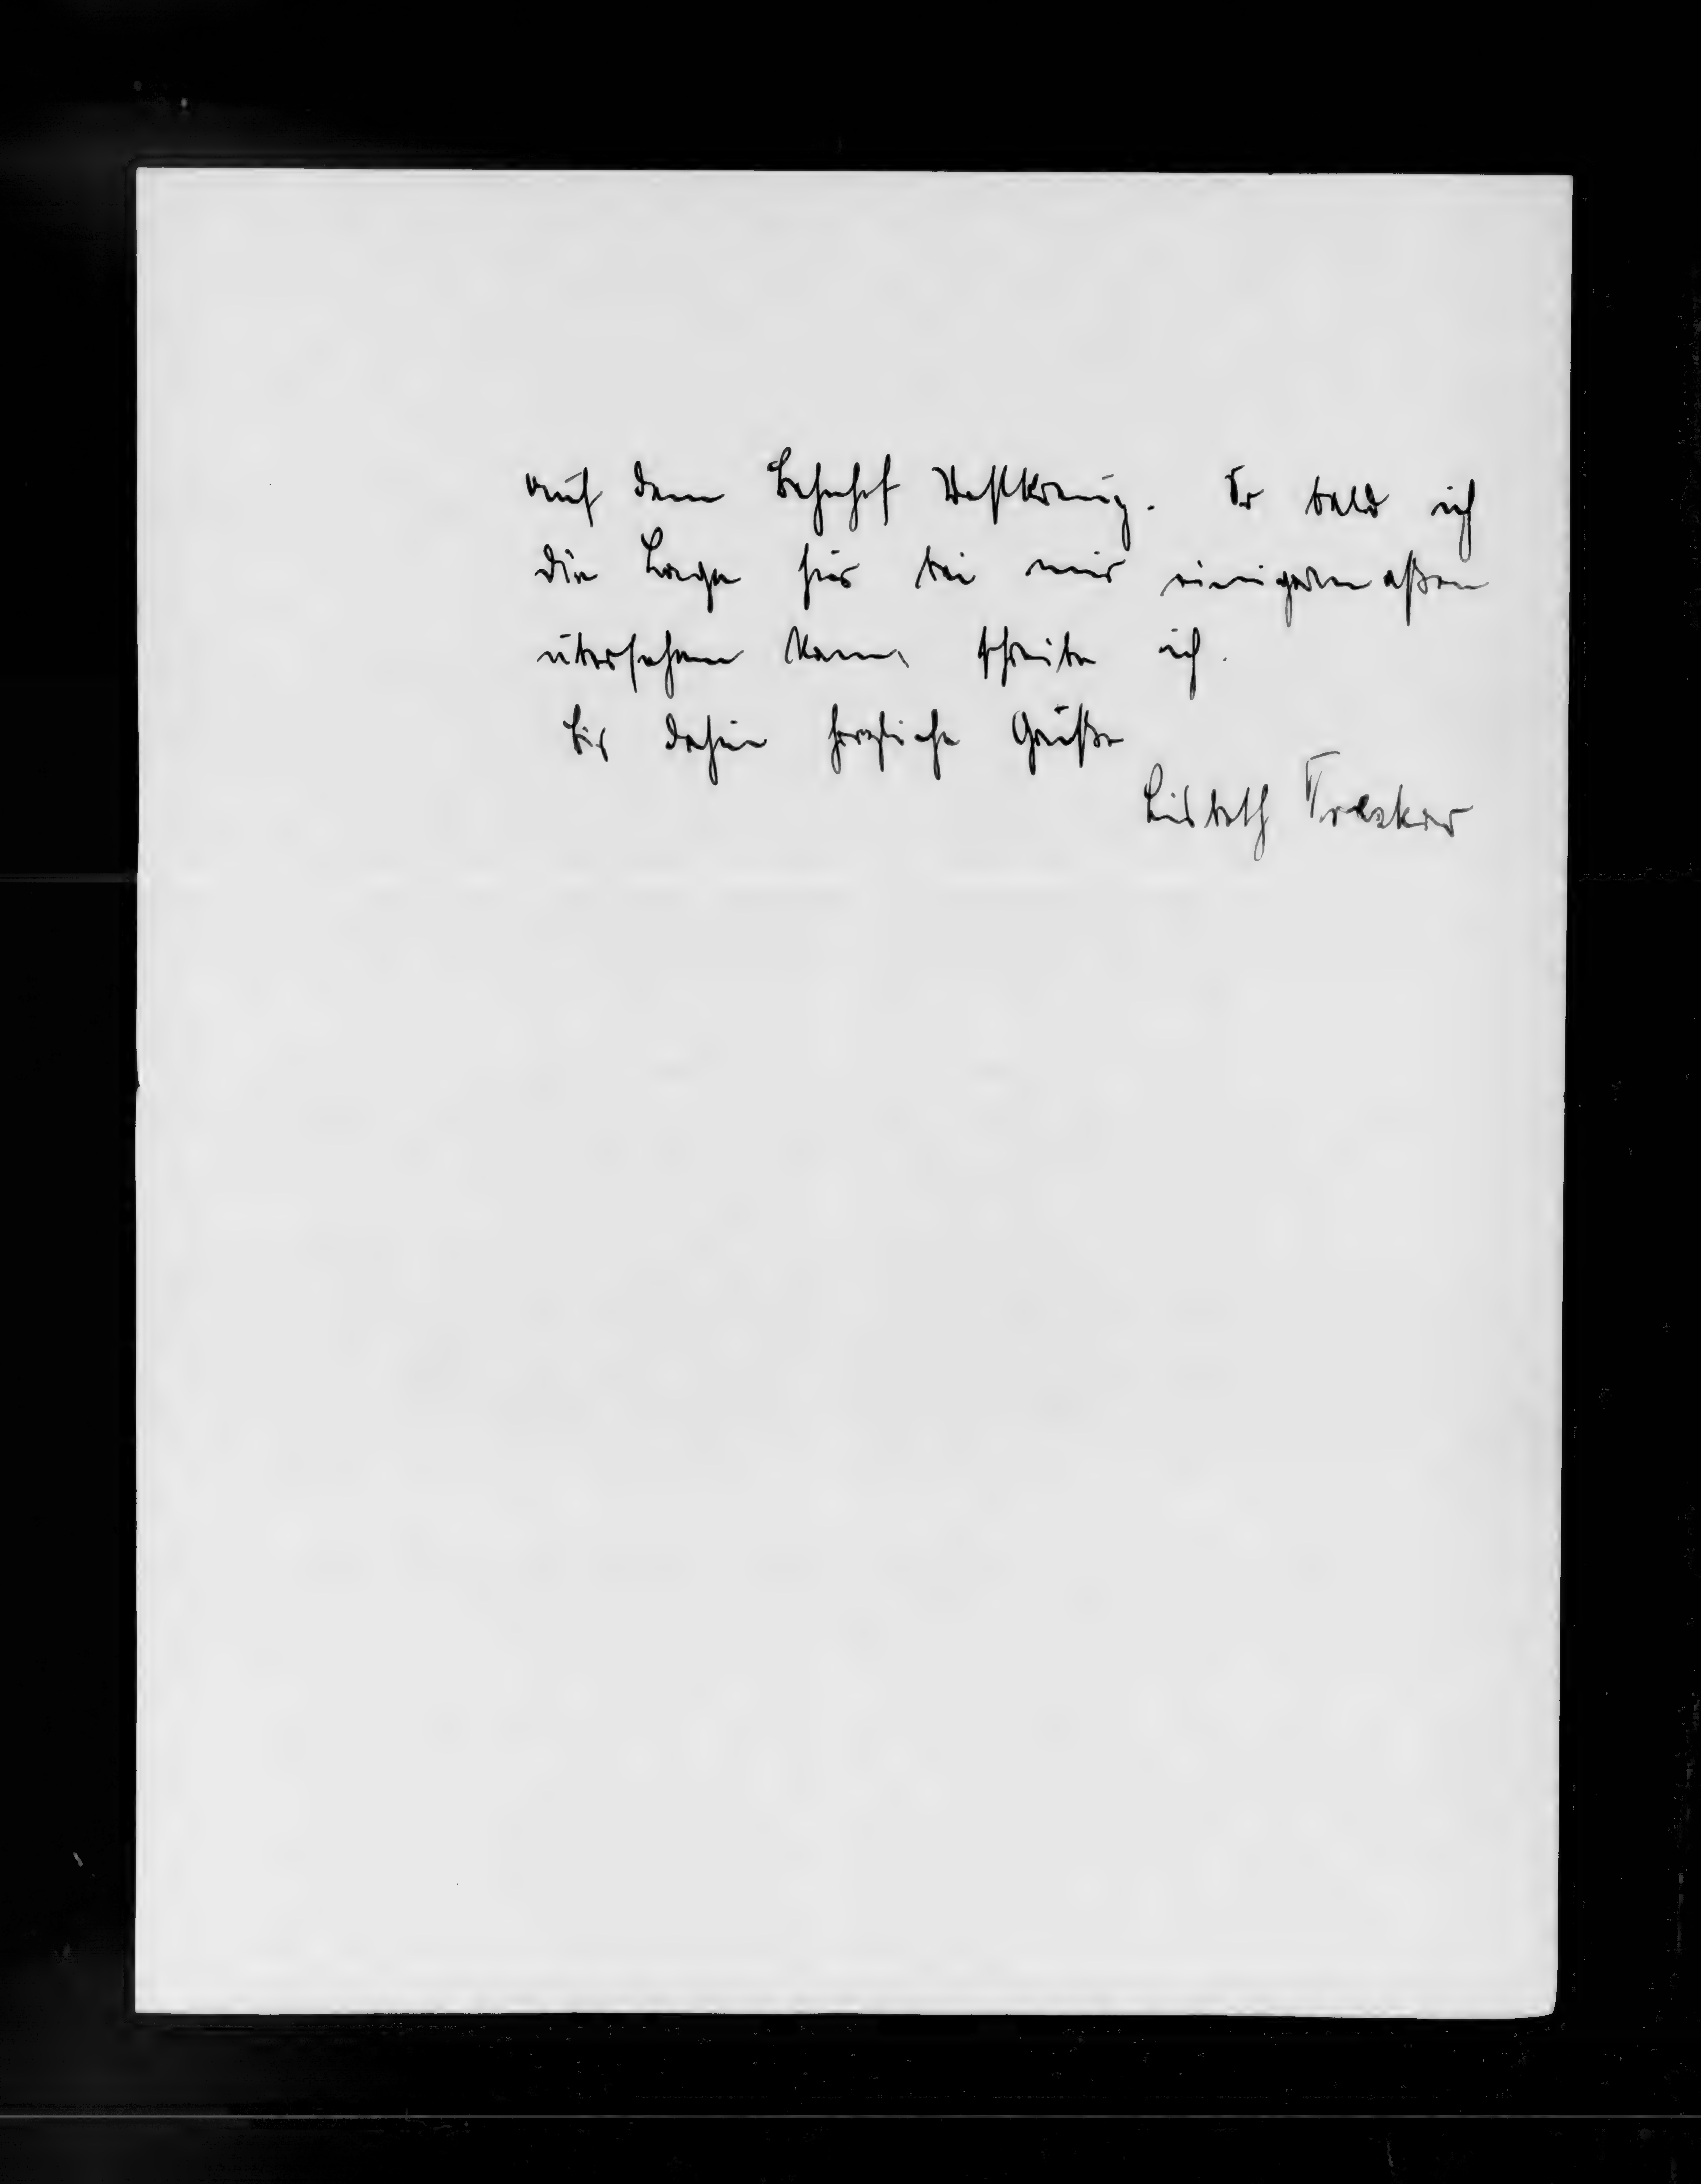 auf dem Bahnhof Westkreuz. So bald ich
die Lage hier bei mir einigermaßen
übersehen kann, schreibe ich.
Bis dahin herzliche Grüße
Lisbeth